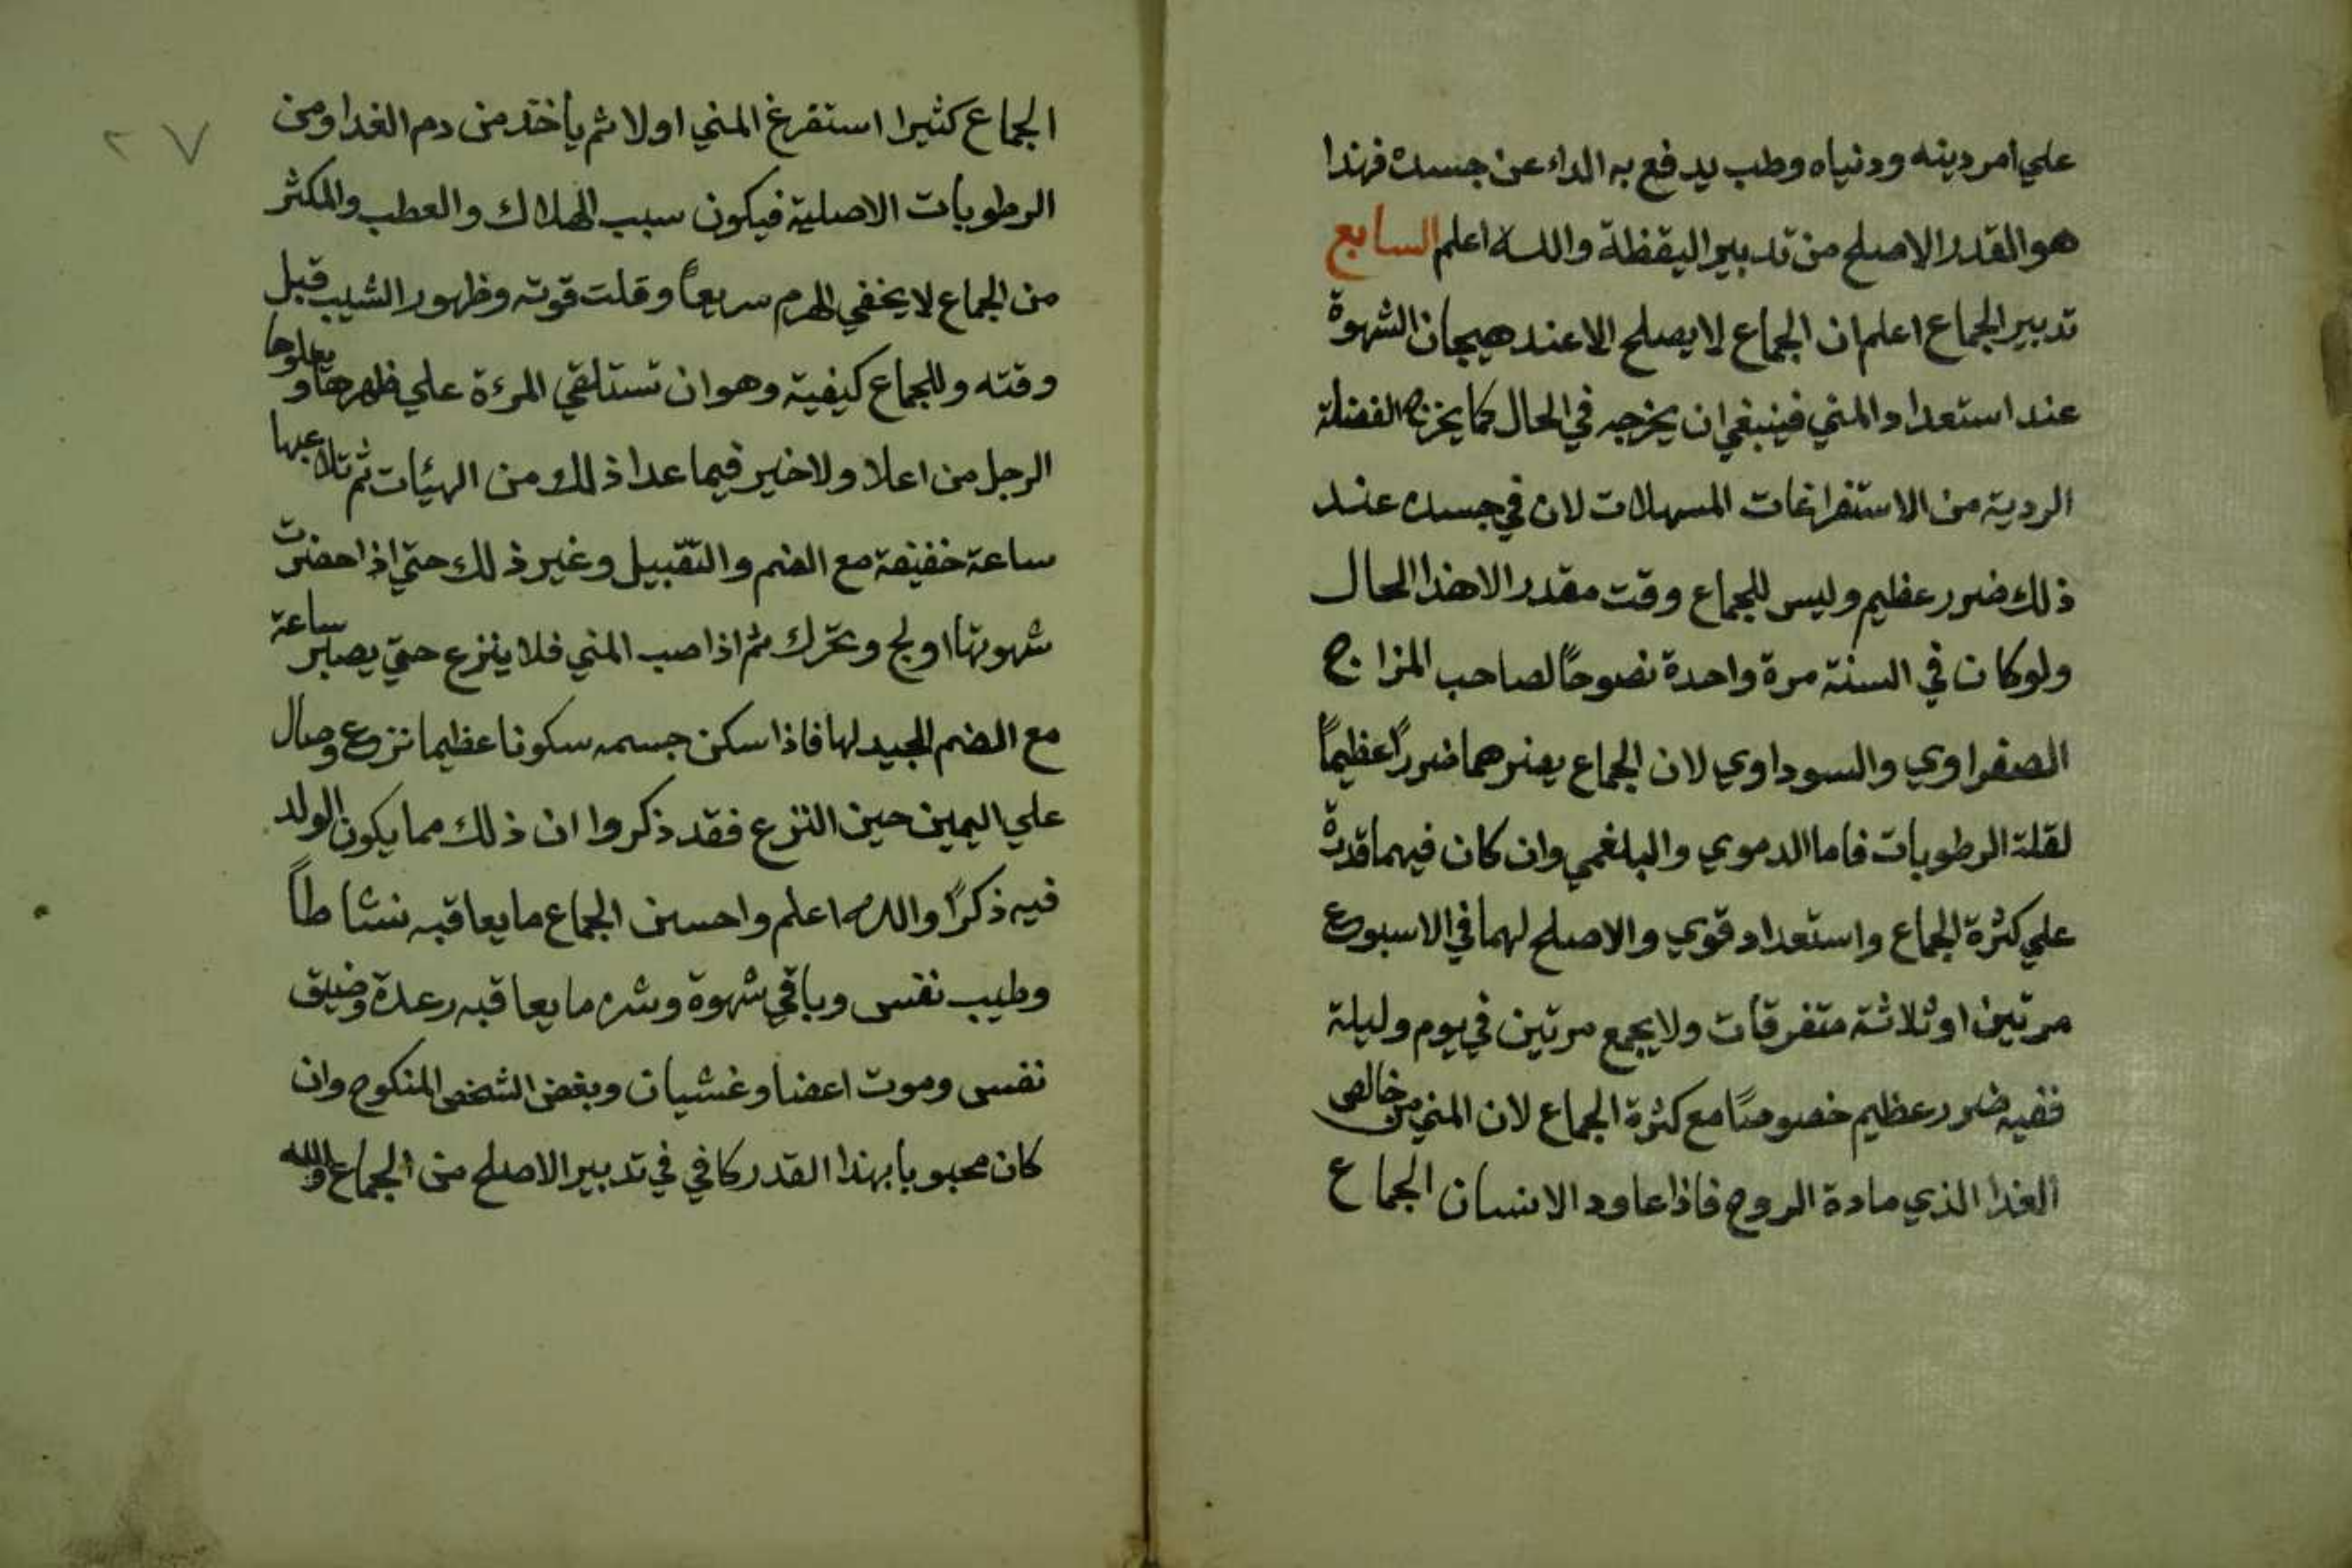 علي امر دينه ودنياه وطب يدفع به الداء عن جسده فهذا
هو القدر الاصلح من تدبير اليقظة والله اعلم السابع
تدبير الجماع اعلم ان الجماع لا يصلح الا عند هيجان الشهوة
عند استعداد المني فينبغي ان يخرجه في الحال كما يخرج الفضلة
الردية من الاستفراغات المسهلات لان في جسده عند
ذلك ضرر عظيم وليس للجماع وقت مقدر الا هذا الحال
ولو كان في السنة مرة واحدة نصوحاً لصاحب المزاج
الصفراوي والسوداوي لان الجماع يضرهما ضرراً عظيماً
لقلة الرطوبات فاما الدموي والبلغمي وان كان فيهما قدرة
علي كثرة الجماع واستعداد قوي والاصلح لهما في الاسبوع
مرتين او ثلاثة متفرقات ولا يجمع مرتين في يوم وليلة
ففيه ضرر عظيم خصوصًا مع كثرة الجماع لان المني من خالص
الغذا الذي مادة الروح فاذا عاود الانسان الجماع
٢٧
الجماع كثيرا استفرغ المني اولا ثم يأخذ من دم الغدا ومن
الرطوبات الاصلية فيكون سبب الهلاك والعطب والمكثر
من الجماع لا يخفي الهرم سريعاً وقلت قوته وظهور الشيب قبل
وقته وللجماع كيفية وهو ان تستلقي المرءة علي ظهرها ويعلوها
الرجل من اعلا ولا خير فيما عدا ذلك من الهيئات ثم تلاعبها
ساعة خفيفة مع الضم والتقبيل وغير ذلك حتي اذا حضرت
شهوتها اولج وتحرك ثم اذا صب المني فلا ينزع حتي يصبر ساعة
مع الضم الجيد لها فاذا سكن جسمه سكونا عظيما نزع ومال
علي اليمين حين النزع فقد ذكروا ان ذلك مما يكون الولد
فيه ذكرًا والله اعلم واحسن الجماع ما يعاقبه نشاطاً
وطيب نفس وباقي شهوة وشره ما يعاقبه رعدة وضيق
نفس وموت اعضا وغشيان وبغض الشخص المنكوح وان
كان محبوبا بهذا القدر كافي في تدبير الاصلح من الجماع والله